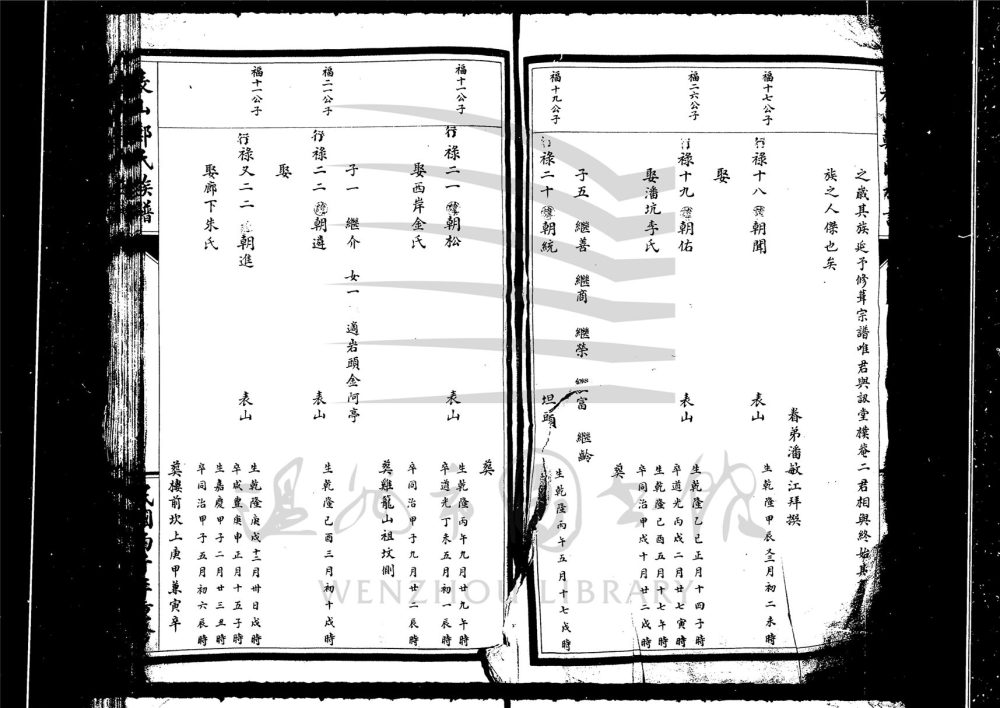 之歲其族延予修葺宗譜唯君與訊堂樸菴二君相與終始其
族之人傑也矣
眷弟潘敏江拜撰
福十七公子
行祿十八 諱朝聞
表山
生乾隆甲辰又三月初二未時
娶
福二六公子
行祿十九 諱朝佑
表山
生乾隆乙巳正月十四子時
卒道光丙戌二月廿七寅時
娶潘坑李氏
生乾隆己酉五月十七午時
卒同治甲戌十月廿二戌時
葬
子五 繼善 繼商 繼榮 繼富 繼齡
福十九公子
行祿二十 諱朝統
坦頭
生乾隆丙午五月十七戌時
葬
福十一公子
行祿二一 諱朝松
表山
生乾隆丙午九月廿九午時
卒道光丁未五月初一辰時
娶西岸金氏
卒同治甲子九月廿二辰時
葬雞籠山祖墳側
子一 繼介 女一 適岩頭金阿亭
福二一公子
行祿二二 諱朝遠
表山
生乾隆己酉三月初十戌時
娶
福十一公子
行祿又二二 諱朝進
表山
生乾隆庚戌十二月卅日戌時
卒咸豐庚申正月十五子時
娶廊下朱氏
生嘉慶甲子二月廿三丑時
卒同治甲子五月初六辰時
葬樓前坎上庚甲兼寅卒
表山鄭氏族譜
溫州市圖書館
WENZHOU LIBRARY